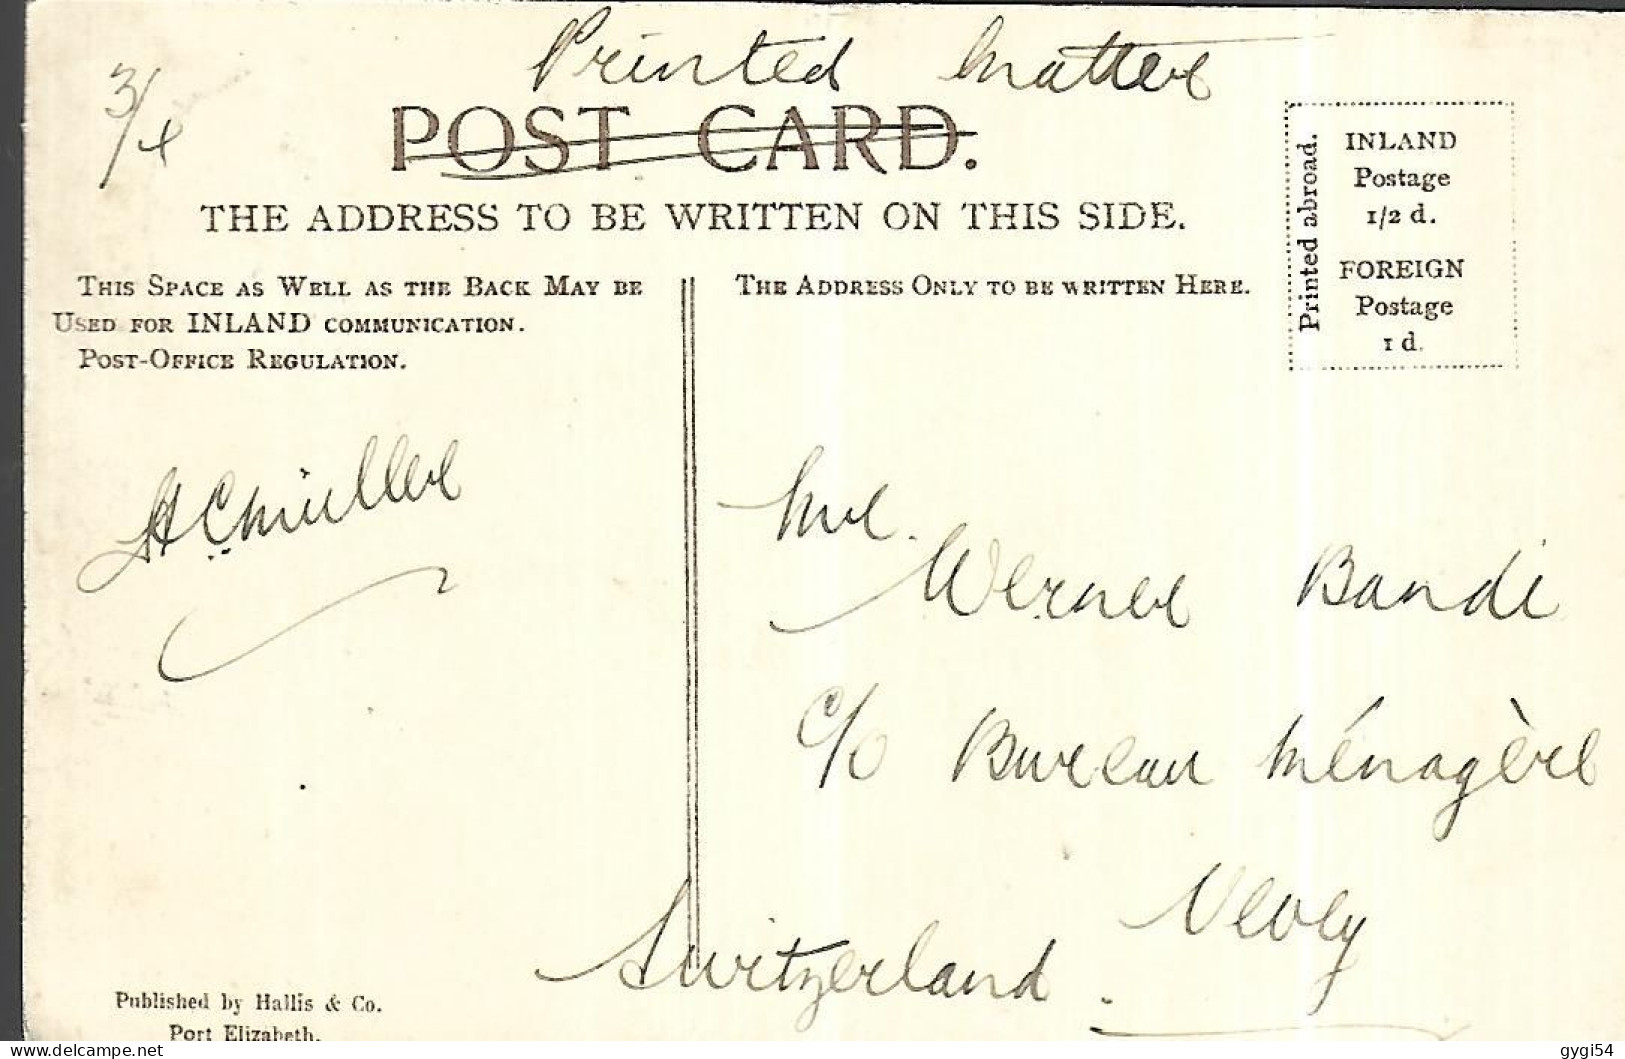 Printed Matter
3/4
POST CARD.
THE ADDRESS TO BE WRITTEN ON THIS SIDE.
Printed abroad.
INLAND
Postage
1/2 d.
FOREIGN
Postage
1 d.
THIS SPACE AS WELL AS THE BACK MAY BE
USED FOR INLAND COMMUNICATION.
POST-OFFICE REGULATION.
THE ADDRESS ONLY TO BE WRITTEN HERE.
Müller
Werner Bandi
c/o Bureau Ménagère
Vevey
Switzerland.
Published by Hallis & Co.
Port Elizabeth.
gygi54